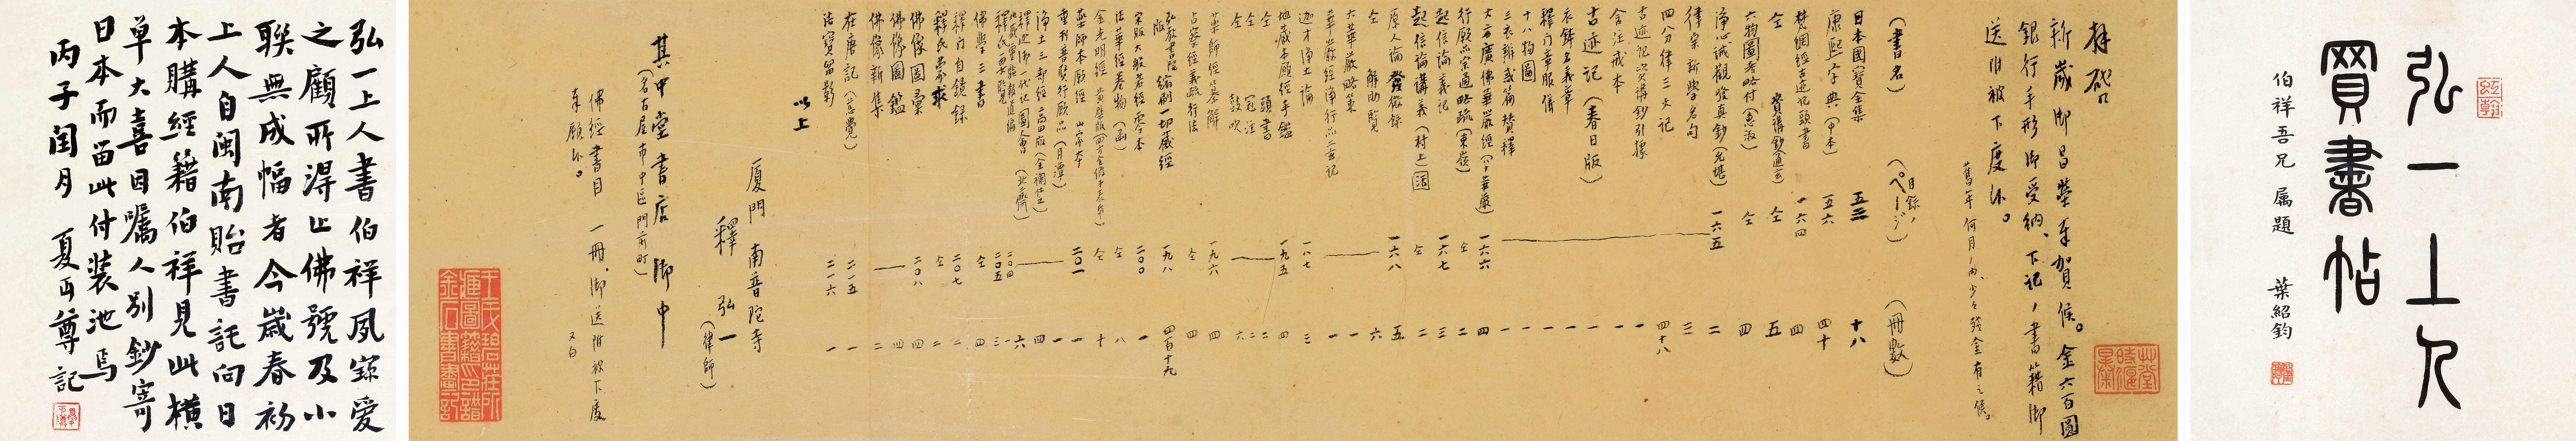 弘一上人
買書帖
伯祥吾兄屬題
葉紹鈞
拜啓
新歲御昌榮奉賀候。金六百圓
銀行手形御受納、下記ノ書籍御
送附被下度候。
(書名)
目錄ノ
(ページ)
(冊數)
日本國寶全集
五三
十八
康熙字典(中本)
五六
四十
梵網經古迹記頭書
一六四
四
仝
仝
五
六物圖考略付(惠淑)
仝
四
淨心誡觀發真鈔(允堪)
一六五
二
律宗新學名句
三
四分律三大記
四十八
古迹記資講鈔引據
一
含注戒本
一
古迹記(春日版)
一
衣鉢名義章
一
釋門章服儀
一
十八物圖
一
三衣辨惑篇贊釋
一
大方廣佛華嚴經(八十華嚴)
一六六
四
行願品宗通略疏(東嶽)
仝
二
起信論義記
一六七
三
起信論講義(村上)
仝
二
原人論發微錄
一六八
五
仝 解助覽
六
大華嚴略策
一
華嚴經淨行品二玄記
一
迦才淨土論
一八七
三
地藏本願經手鑑
一九五
四
仝 頭書
二
仝 冠注
二
仝 鼓吹
六
藥師經纂解
一九六
四
占察經義疏行法
仝
四
弘教書院縮刷一切藏經
一九八
四百十九
宋版大般若經零本
二〇〇
一
法華經卷物(函)
仝
八
仝
十
藥師本願經
一
普賢行願品(月潭)
二〇一
一
淨土三部經
四
釋迦御一代記圖會
六
釋氏要覽
二〇五
三
佛學三書
仝
四
釋門自鏡錄
二〇七
二
釋氏蒙求
仝
二
佛像圖彙
二〇八
四
佛像圖鑑
四
佛像新集
二
在唐記(慈覺)
二一五
一
法寶留影
二一六
一
以上
廈門南普陀寺
釋弘一
(律師)
其中堂書店御中
(名古屋市中區門前町)
佛經書目一冊、御送附被下度
奉願候。
又白
弘一上人書伯祥夙寶愛
之顧所得止佛號及小
聯無成幅者今歲春初
上人自閩南貽書託向日
本購經籍伯祥見此橫
單大喜因囑人別鈔寄
日本而留此付裝池焉
丙子閏月夏丏尊記